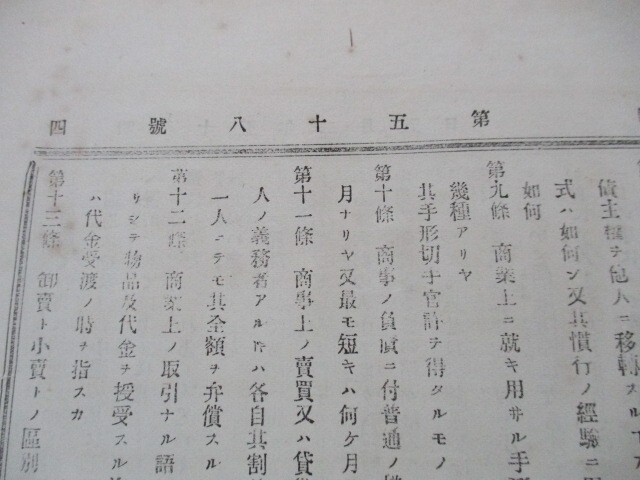 第五十八號 四
債主權ヲ他人ニ移轉スル
式ハ如何ン又其慣行ノ經驗ニ
如何
第九條 商業上ニ就キ用サル手
幾種アリヤ
其手形切手官許ヲ得タルモノ
第十條 商事ノ負債ニ付普通ノ
月ナリヤ又最モ短キハ何ケ月
第十一條 商事上ノ賣買又ハ貸
人ノ義務者アル片ハ各自其割
一人ニテモ其全額ヲ弁償スル
第十二條 商業上ノ取引ナル語
リシテ物品及代金ヲ授受スル
ハ代金受渡ノ時ヲ指スカ
第十三條 卸賣ト小賣トノ區別